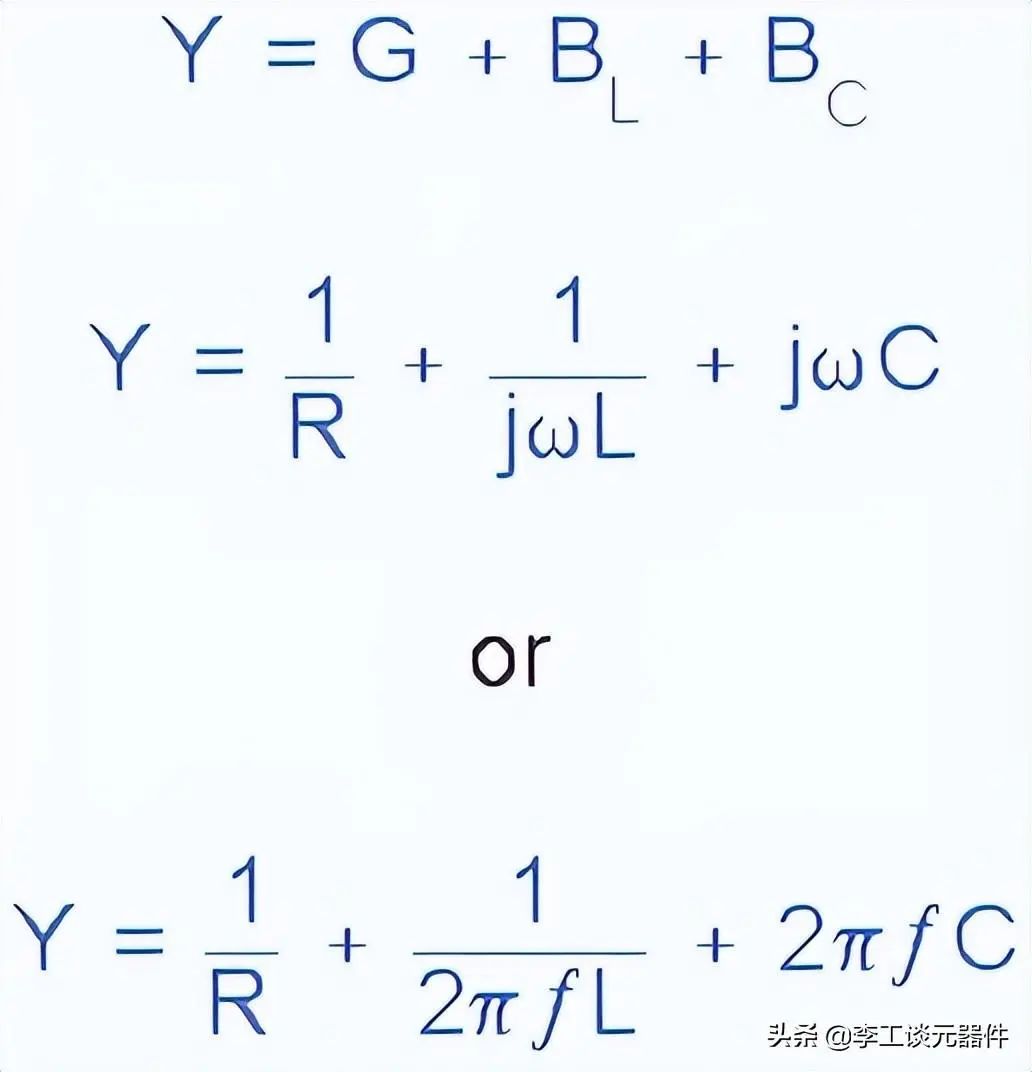 Y = G + B_L + B_C
Y = 1/R + 1/(jωL) + jωC
or
Y = 1/R + 1/(2πfL) + 2πfC
头条 @李工谈元器件